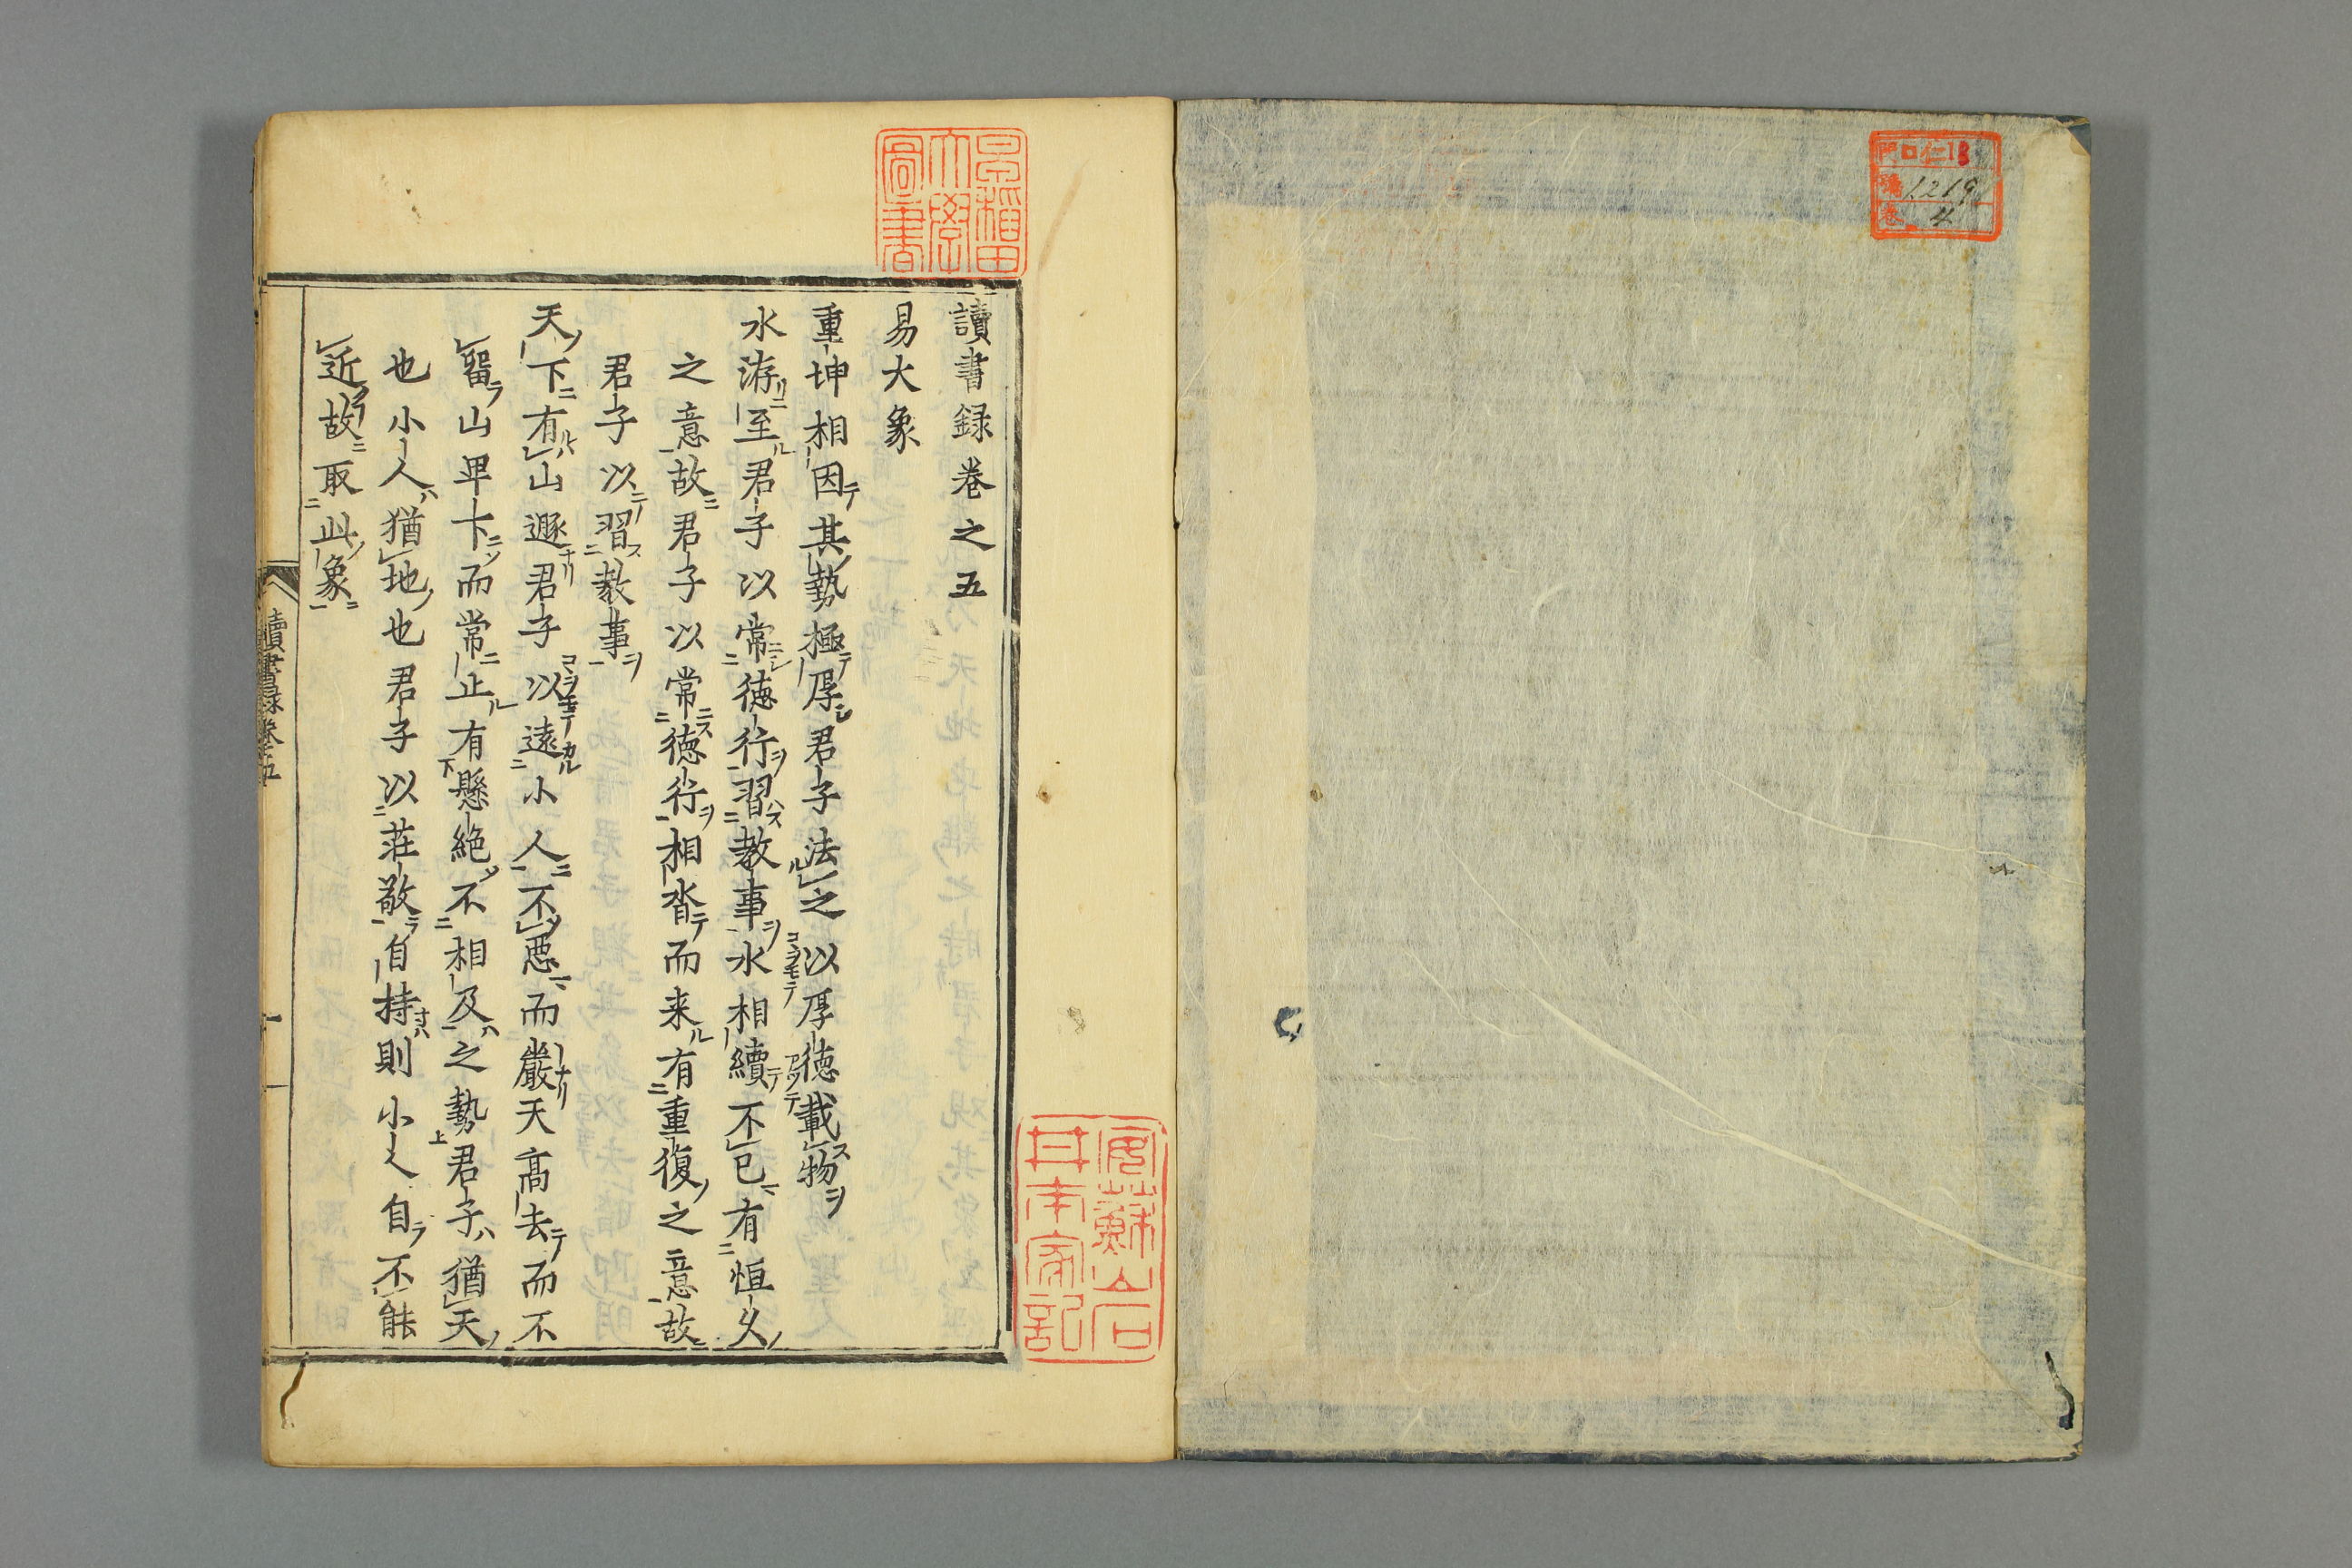 門 口仁13
號 1219
卷 4
早稲田大學圖書
讀書録卷之五
易大象
重坤相因其勢極厚君子法之以厚德載物
水洊至君子以常德行習教事水相續不已有恒久
之意故君子以常徳行相沓而来有重復之意故
君子以習教事
天下有山遯君子以遠小人不惡而嚴天高去而不
畱山卑下而常止有懸絶不相及之勢君子猶天
也小人猶地也君子以莊敬自持則小人自不能
近故取此象
讀書録卷五
一